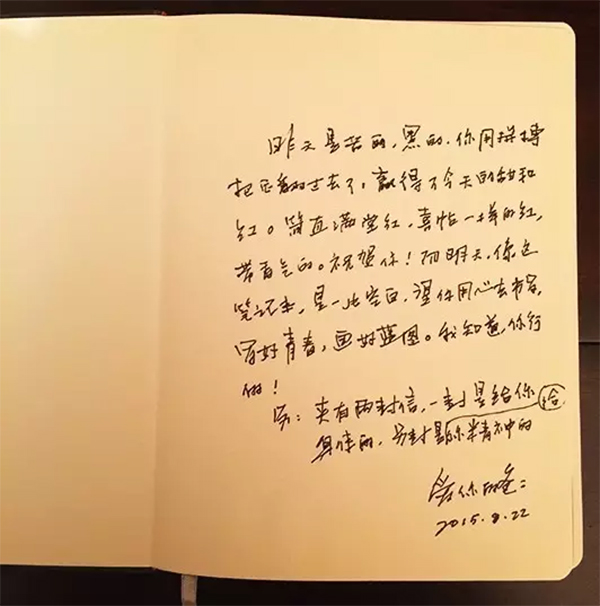 昨天是苦的，黑的，你用拼搏
把它翻过去了，赢得了今天的甜和
红。简直满堂红，喜帖一样的红，
带香气的。祝贺你！而明天，像这
笔记本，是一片空白，望你用心去书写，
写好青春，画好蓝图。我知道，你行
的！
另：夹有两封信，一封是给你
具体的，另封是给你精神的
爱你的爸：
2015.8.22